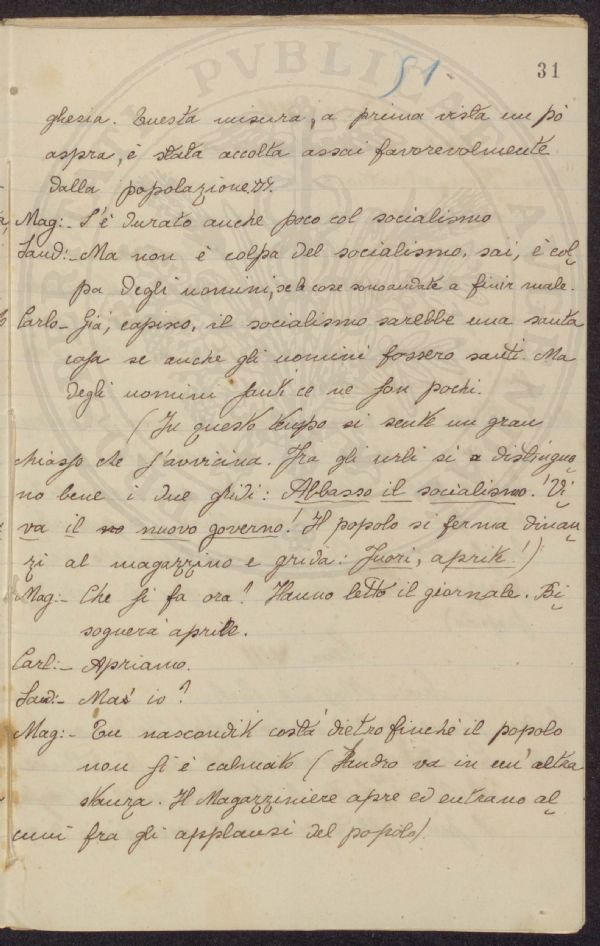 PVBLICA
51
31
ghesia. Questa misura, a prima vista un pò
aspra, è stata accolta assai favorevolmente
dalla popolazione".
Mag:- S'è durato anche poco col socialismo
Sand:- Ma non è colpa del socialismo, sai, è col-
pa degli uomini, se le cose sono andate a finir male.
Carlo- Già, capisco, il socialismo sarebbe una santa
cosa se anche gli uomini fossero santi. Ma
degli uomini santi ce ne son pochi.
(In questo tempo si sente un gran
chiasso che s'avvicina. Fra gli urli si a distinguo-
no bene i due gridi: Abbasso il socialismo! Vi-
va il no nuovo governo! Il popolo si ferma dinan-
zi al magazzino e grida: Fuori, aprite!)
Mag:- Che si fa ora? Hanno letto il giornale. Bi-
sognerà aprire.
Carl:- Apriamo.
Sand:- Ma io?
Mag:- Tu nasconditi costà dietro finchè il popolo
non si è calmato (Sandro va in un'altra
stanza. Il Magazziniere apre ed entrano al-
cuni fra gli applausi del popolo).